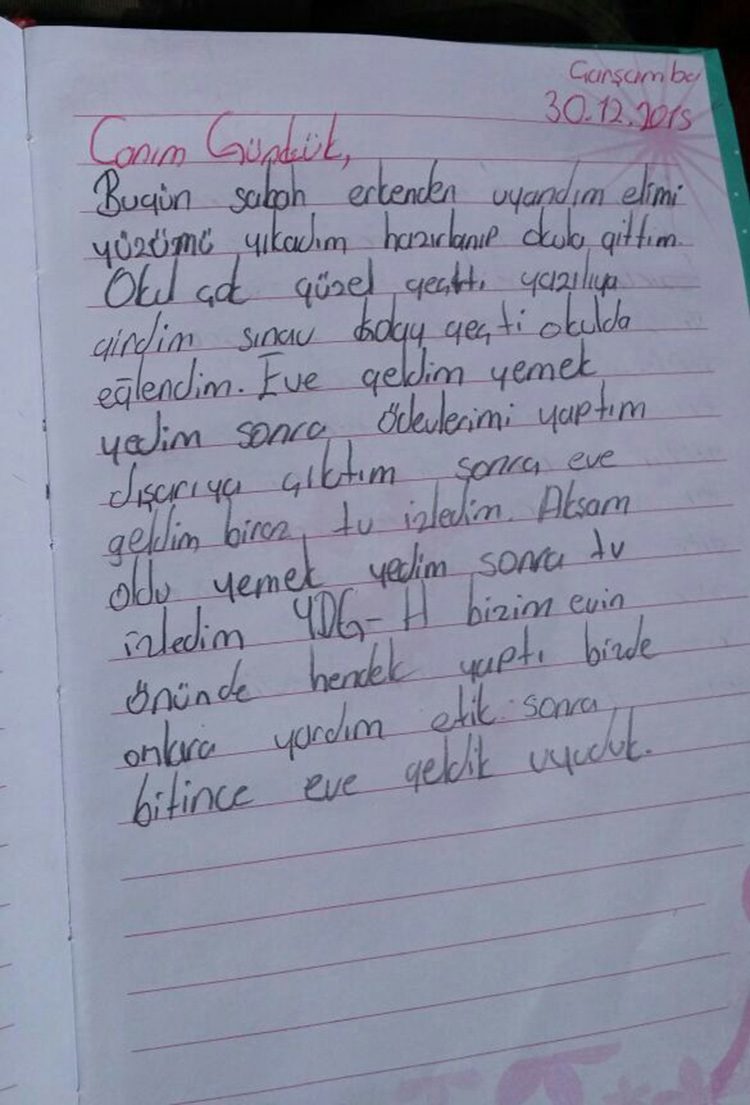 Çarşamba
30.12.2015
Canım Günlük,
Bugün sabah erkenden uyandım elimi
yüzümü yıkadım hazırlanıp okula gittim.
Okul çok güzel geçti yazılıya
girdim sınav kolay geçti okulda
eğlendim. Eve geldim yemek
yedim sonra ödevlerimi yaptım
dışarıya çıktım sonra eve
geldim biraz tv izledim. Aksam
oldu yemek yedim sonra tv
izledim YDG-H bizim evin
önünde hendek yaptı bizde
onlara yardım etik sonra
bitince eve geldik uyuduk.